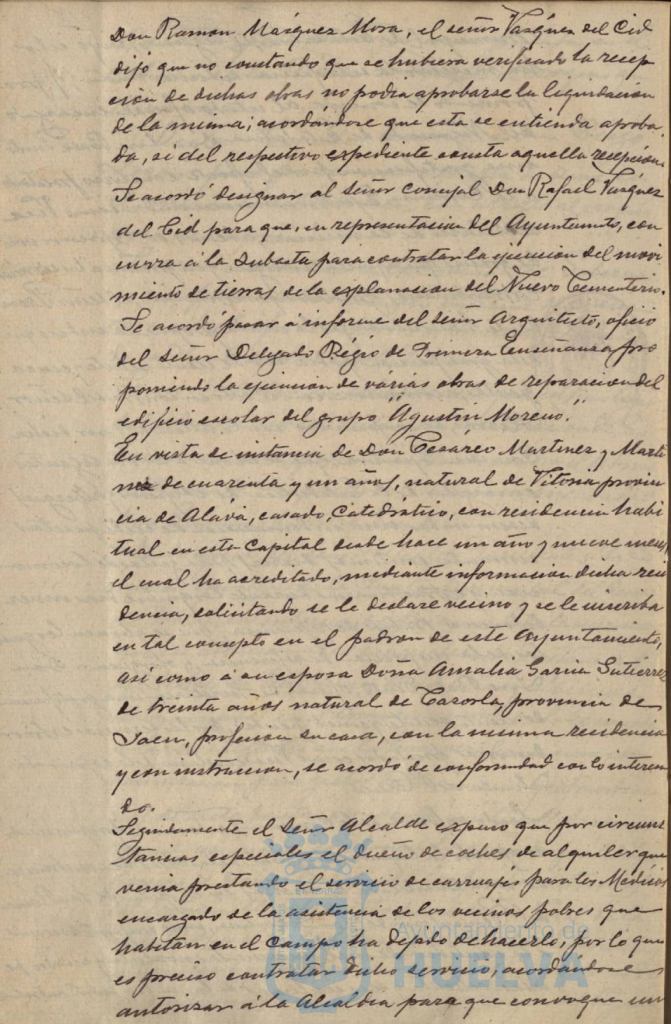 Don Ramon Márquez Mora, el señor Vazquez del Cid
dijo que no constando que se hubiera verificado la recep
cion de dichas obras no podia aprobarse la liquidacion
de la misma; acordándose que esta se entienda aproba
da, si del respectivo expediente consta aquella recepcion.
Se acordó designar al Señor concejal Don Rafael Vazquez
del Cid para que, en representacion del Ayuntamto, con
curra á la subasta para contratar la ejecucion del movi
miento de tierras de la explanacion del Nuevo Cementerio.
Se acordó pasar á informe del señor Arquitecto, oficio
del señor Delegado Régio de Primera Enseñanza, pro
poniendo la ejecucion de várias obras de reparacion del
edificio escolar del grupo "Agustin Moreno".
En vista de instancia de Don Cesáreo Martinez y Marti
nez de cuarenta y un años, natural de Vitoria provin
cia de Alava, casado, Catedrático, con residencia habi
tual en esta Capital desde hace un año y nueve meses,
el cual ha acreditado, mediante informacion dicha resi
dencia, solicitando se le declare vecino y se le inscriba
en tal consepto en el padron de este Ayuntamiento,
asi como á su esposa Doña Amalia Garcia Gutierrez
de treinta años natural de Cazorla, provincia de
Jaen, profesion su casa, con la misma residencia
y con instruccion, se acordó de conformidad con lo interesa
do.
Seguidamente el Señor Alcalde expuso que por circuns
tancias especiales el dueño de coches de alquiler que
venia prestando el servicio de carruajes para los Medicos
encargado de la asistencia de los vecinos pobres que
habitan en el Campo ha dejado de hacerlo, por lo que
es preciso contratar dicho servicio, acordandose
autorizar á la Alcaldia para que convoque un
Ayuntamiento de
HUELVA